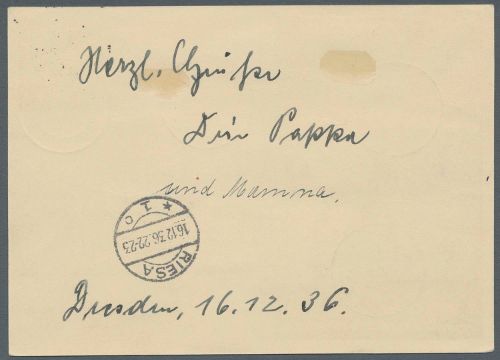 Herzl. Grüße
Dein Pappa
und Mamma.
* 1 c
16.12.36.22-23
RIESA
Dresden, 16.12.36.